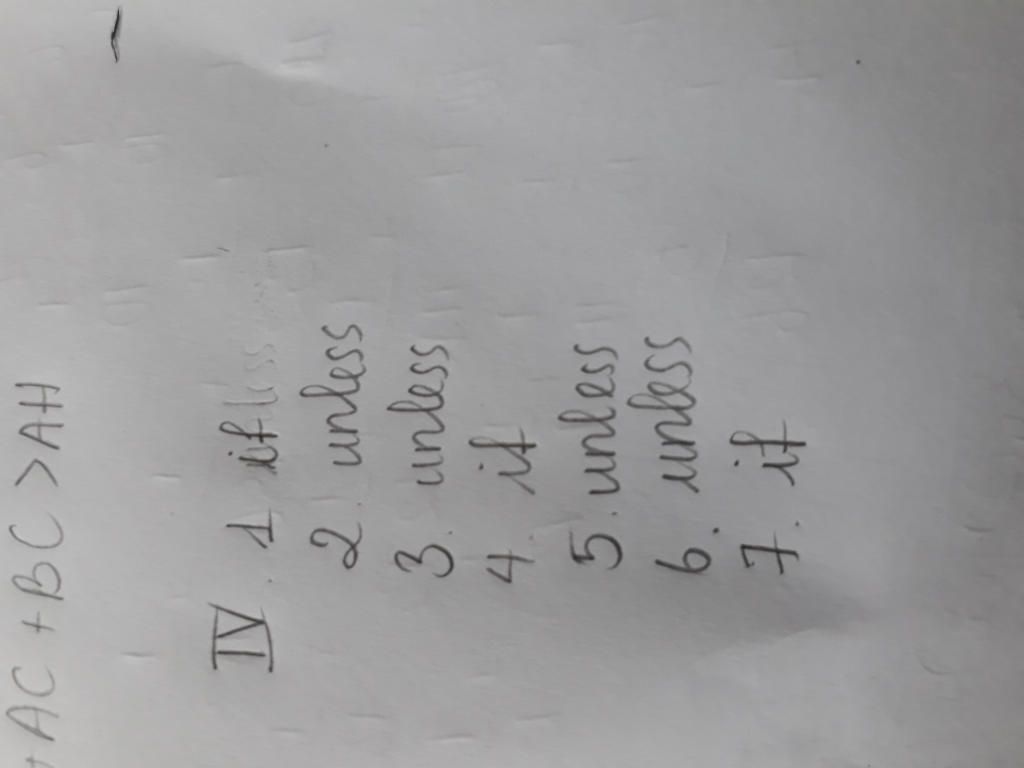 AC + BC > AH
IV. 1 if
2. unless
3. unless
4. if
5. unless
6. unless
7. if